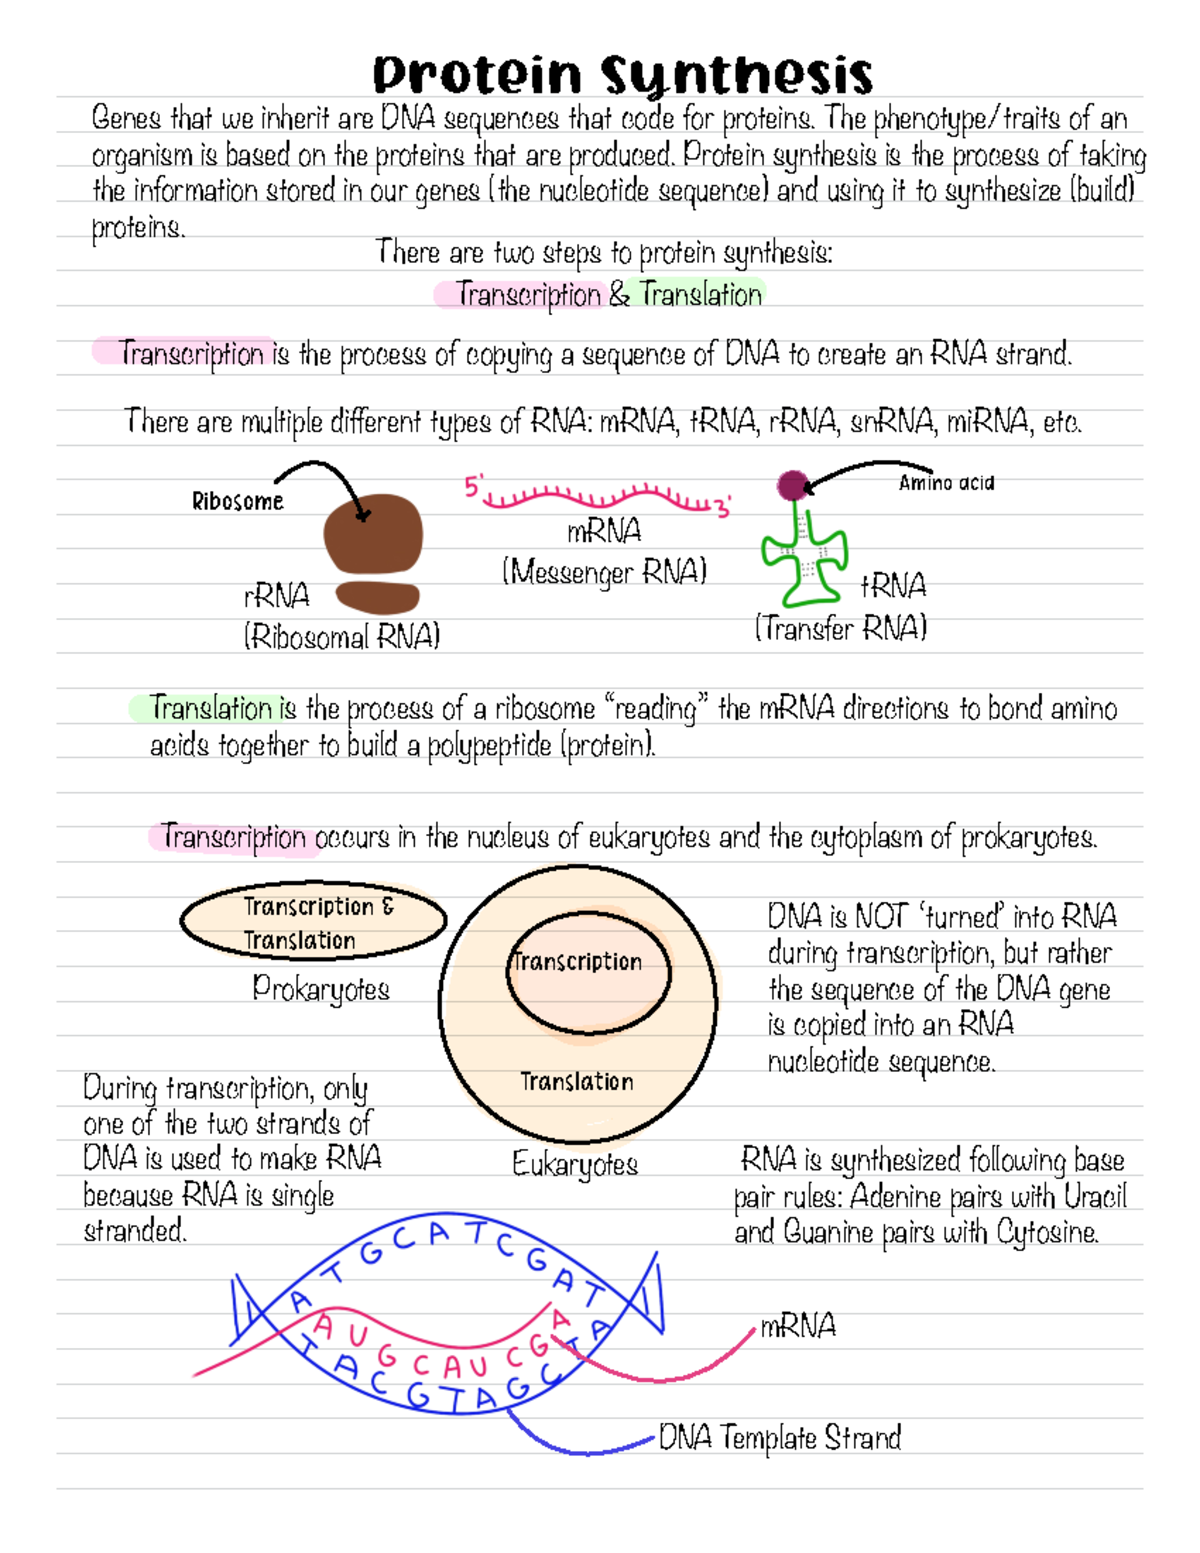 Protein Synthesis
Genes that we inherit are DNA sequences that code for proteins. The phenotype/traits of an
organism is based on the proteins that are produced. Protein synthesis is the process of taking
the information stored in our genes (the nucleotide sequence) and using it to synthesize (build)
proteins.
There are two steps to protein synthesis:
Transcription & Translation
Transcription is the process of copying a sequence of DNA to create an RNA strand.
There are multiple different types of RNA: mRNA, tRNA, rRNA, snRNA, miRNA, etc.
Ribosome
rRNA
(Ribosomal RNA)
5' 3'
mRNA
(Messenger RNA)
Amino acid
tRNA
(Transfer RNA)
Translation is the process of a ribosome “reading” the mRNA directions to bond amino
acids together to build a polypeptide (protein).
Transcription occurs in the nucleus of eukaryotes and the cytoplasm of prokaryotes.
Transcription &
Translation
Prokaryotes
Transcription
Translation
Eukaryotes
DNA is NOT ‘turned’ into RNA
during transcription, but rather
the sequence of the DNA gene
is copied into an RNA
nucleotide sequence.
During transcription, only
one of the two strands of
DNA is used to make RNA
because RNA is single
stranded.
RNA is synthesized following base
pair rules: Adenine pairs with Uracil
and Guanine pairs with Cytosine.
A T G C A T C G A T
A U G C A U C G A
T A C G T A G C T A
mRNA
DNA Template Strand